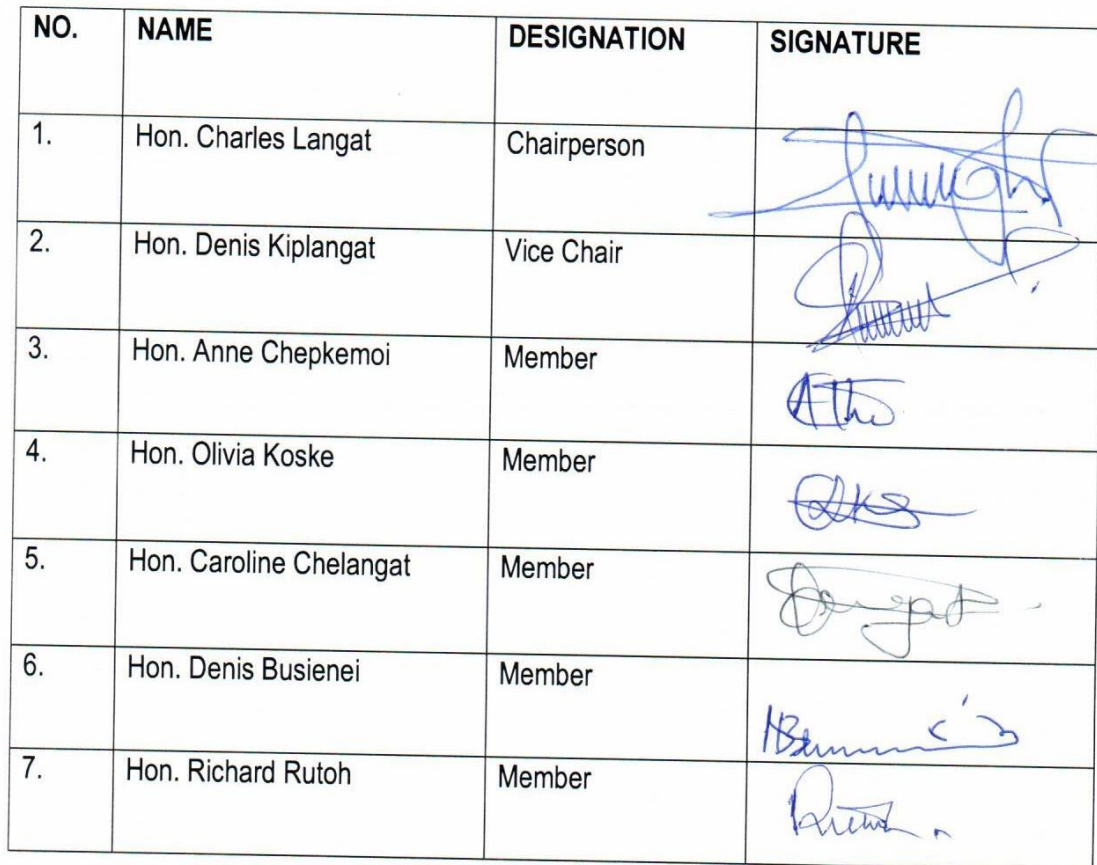 NO. NAME DESIGNATION SIGNATURE
1. Hon. Charles Langat Chairperson
2. Hon. Denis Kiplangat Vice Chair
3. Hon. Anne Chepkemoi Member
4. Hon. Olivia Koske Member
5. Hon. Caroline Chelangat Member
6. Hon. Denis Busienei Member
7. Hon. Richard Rutoh Member